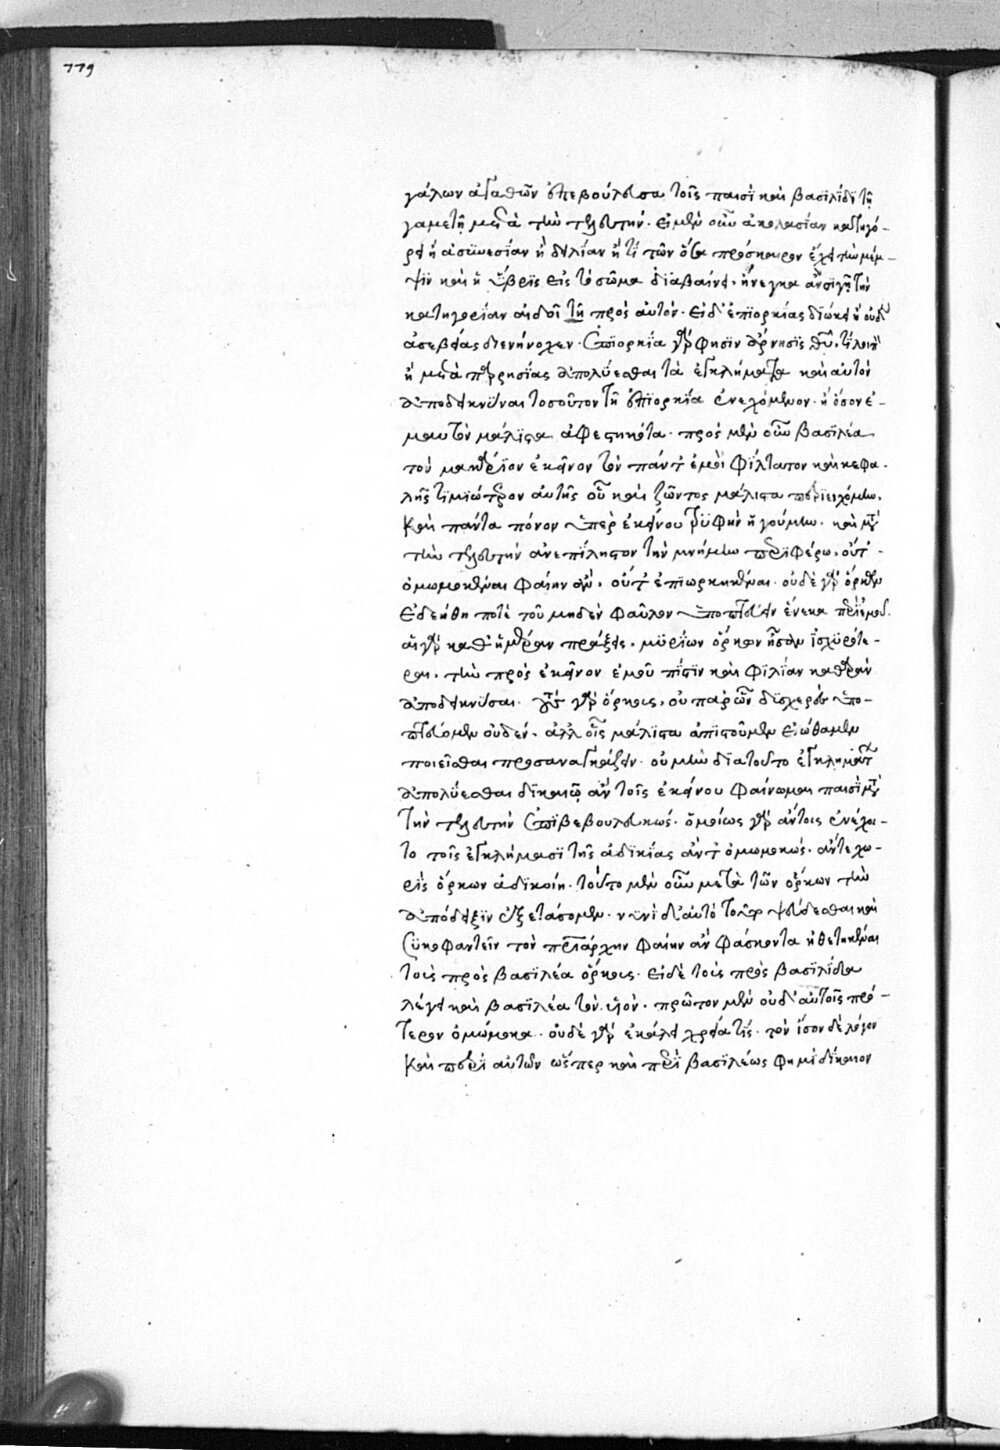 779
γάλων ἀγαθῶν ἐπεβούλευσα τοῖς παισὶ καὶ βασιλίδι τῇ
γαμετῇ μετὰ τὴν τελευτήν. εἰ μὲν οὖν ἀκολασίαν κατηγό-
ρει ἢ ἀσϋνεσίαν ἢ δειλίαν ἤ τι τῶν ὅσα πρόσκαιρον ἔχει τὴν μέμ-
ψιν καὶ ἡ ὕβρις εἰς τὸ σῶμα διαβαίνει, ἤνεγκα ἂν σιγῇ τὴν
κατηγορίαν αἰδοῖ τῇ πρὸς αὐτόν. εἰ δ' ἐπιορκίας διώκει ἣ οὐδὲν
ἀσεβείας διενήνοχεν. ἐπιορκία γάρ φησιν ἄρνησις θεοῦ, τί λοιπὸν
ἢ μετὰ παρρησίας ἀπολύεσθαι τὰ ἐγκλήματα καὶ αὐτὸν
ἀποδεικνύναι τοσοῦτον τῇ ἐπιορκίᾳ ἐνεχόμενον. ἢ ὅσον ἐ-
μαυτὸν μάλιστα ἀφεστηκότα. πρὸς μὲν οὖν βασιλέα
τὸν μακάριον ἐκεῖνον τὸν πάντ' ἐμοὶ φίλτατον καὶ κεφα-
λῆς τιμιώτερον αὐτῆς οὗ καὶ ζῶντος μάλιστα περιειχόμην,
καὶ πάντα πόνον ὑπὲρ ἐκείνου τρυφὴν ἡγούμην. καὶ μετὰ
τὴν τελευτὴν ἀνεπίληστον τὴν μνήμην περιφέρω, οὔτ'
ὀμωμοκέναι φαίην ἄν, οὔτ' ἐπιωρκηκέναι. οὐδὲ γὰρ ὅρκων
ἐδεήθη ποτὲ τοῦ μηδὲν φαῦλον ὑποπτεύειν ἕνεκα περὶ ἐμοῦ.
αἱ γὰρ καθ' ἡμέραν πράξεις, μυρίων ὅρκων ἦσαν ἰσχυρότε-
ραι, τὴν πρὸς ἐκεῖνον ἐμοῦ πίστιν καὶ φιλίαν καθαρὰν
ἀποδεικνῦσαι. τοὺς γὰρ ὅρκους, οὐ παρ' ὧν δυσχερὲς ὑπο-
πτεύομεν οὐδέν. ἀλλ' οἷς μάλιστα ἀπιστοῦμεν εἰώθαμεν
ποιεῖσθαι προσαναγκάζειν. οὐ μὴν διὰ τοῦτο ἐγκλήματος
ἀπολύεσθαι δικαιῶ ἂν τοῖς ἐκείνου φαίνωμαι παισὶ μετὰ
τὴν τελευτὴν ἐπιβεβουλευκώς. ὁμοίως γὰρ ἄν τοις ἐνέχοι-
το τοῖς ἐγκλήμασι τῆς ἀδικίας ἄν τ' ὀμωμοκώς. ἄν τε χω-
ρὶς ὅρκων ἀδικοίη. τοῦτο μὲν οὖν μετὰ τῶν ὅρκων τὴν
ἀπόδειξιν ἐξετάσομεν. νυνὶ δ' αὐτὸ τοῦτο ψεύδεσθαι καὶ
συκοφαντεῖν τὸν πατριάρχην φαίην ἂν φάσκοντα ἠθετηκέναι
τοὺς πρὸς βασιλέα ὅρκους. εἰ δὲ τοὺς πρὸς βασιλίδα
λέγει καὶ βασιλέα τὸν υἱόν. πρῶτον μὲν οὐδ' αὐτοῖς πρό-
τερον ὀμώμοκα. οὐδὲ γὰρ ἐκάλει χρεία τίς. τὸν ἴσον δὲ λόγον
καὶ περὶ αὐτῶν ὥσπερ καὶ περὶ βασιλέως φημὶ δίκαιον